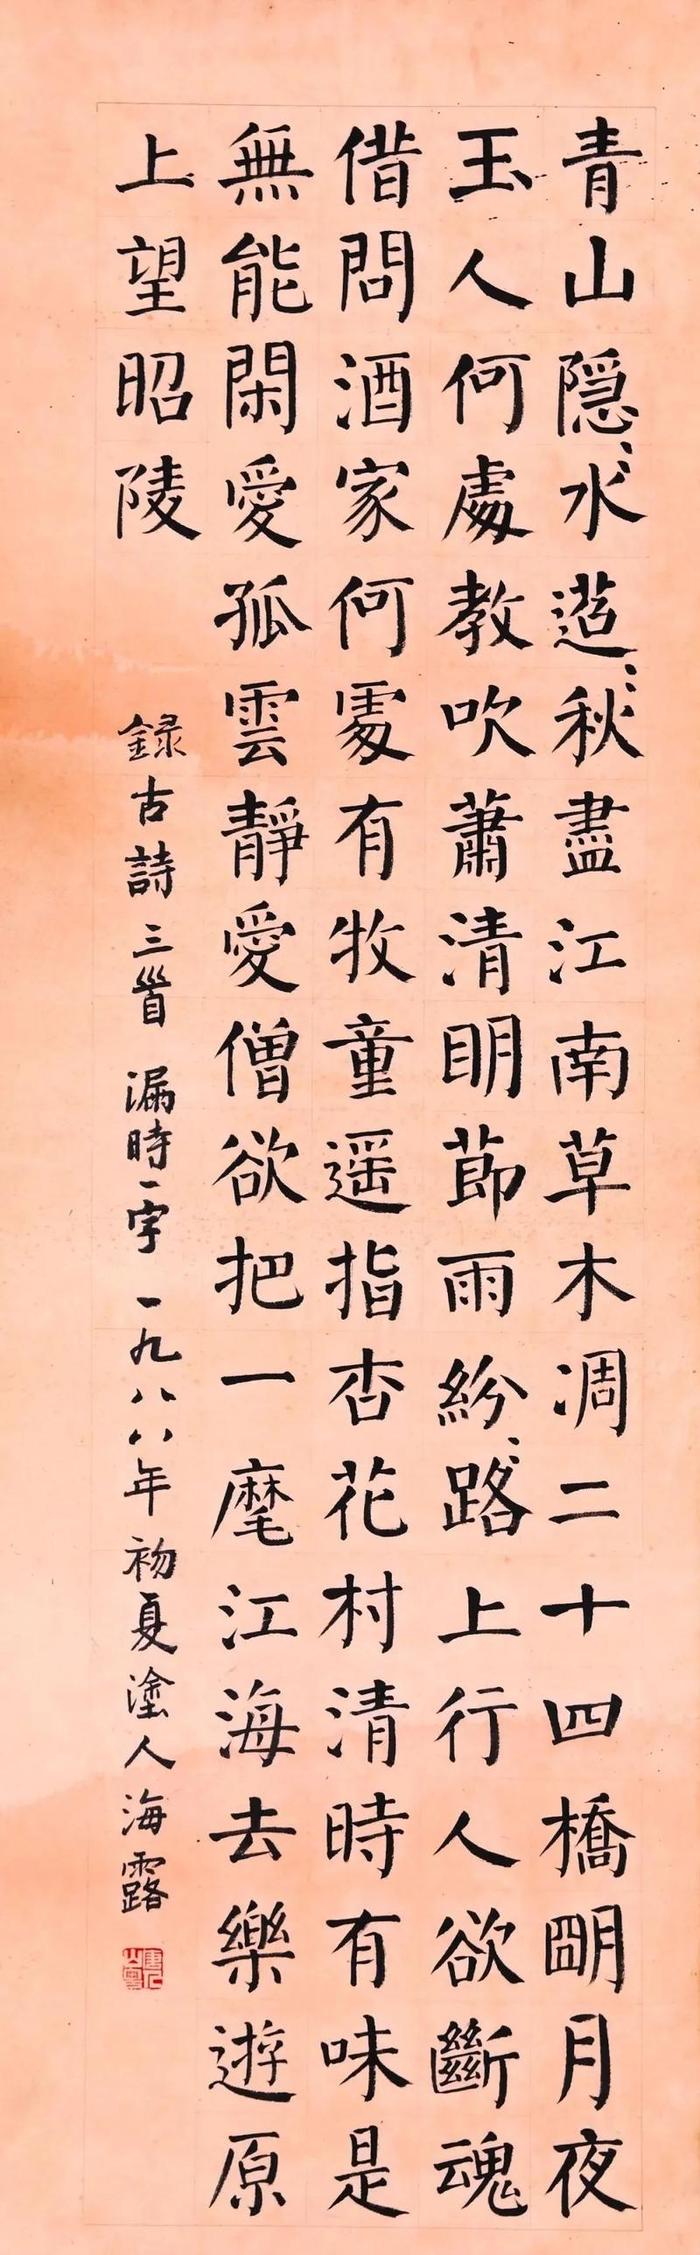 青山隠〻水迢〻秋盡江南草木凋二十四橋朙月夜
玉人何處教吹蕭清眀莭雨紛〻路上行人欲斷魂
借問酒家何處有牧童遥指杏花村清時有味是
無能閑愛孤雲靜愛僧欲把一麾江海去樂遊原
上望昭陵
録古詩三首 漏時一字 一九八八年初夏塗人海露